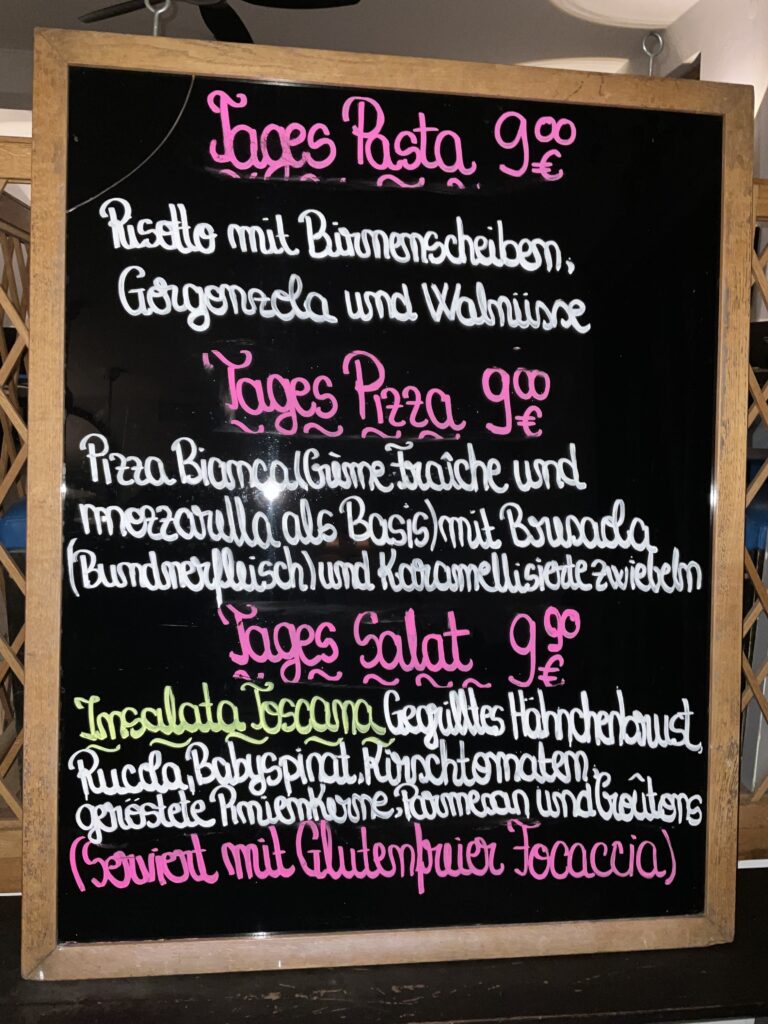 Tages Pasta 9⁰⁰ €
Risotto mit Birnenscheiben,
Gorgonzola und Walnüsse
Tages Pizza 9⁰⁰ €
Pizza Bianca (Crème Fraîche und
mozzarella als Basis) mit Bresaola
(Bundnerfleisch) und Karamellisierte zwiebeln
Tages Salat 9⁹⁰ €
Insalata Toscana Gegrilltes Hähnchenbrust,
Rucola, Babyspinat, Kirschtomaten,
geröstete PinienKerne, Parmesan und Croûtons
(Serviert mit Glutenfreier Focaccia)